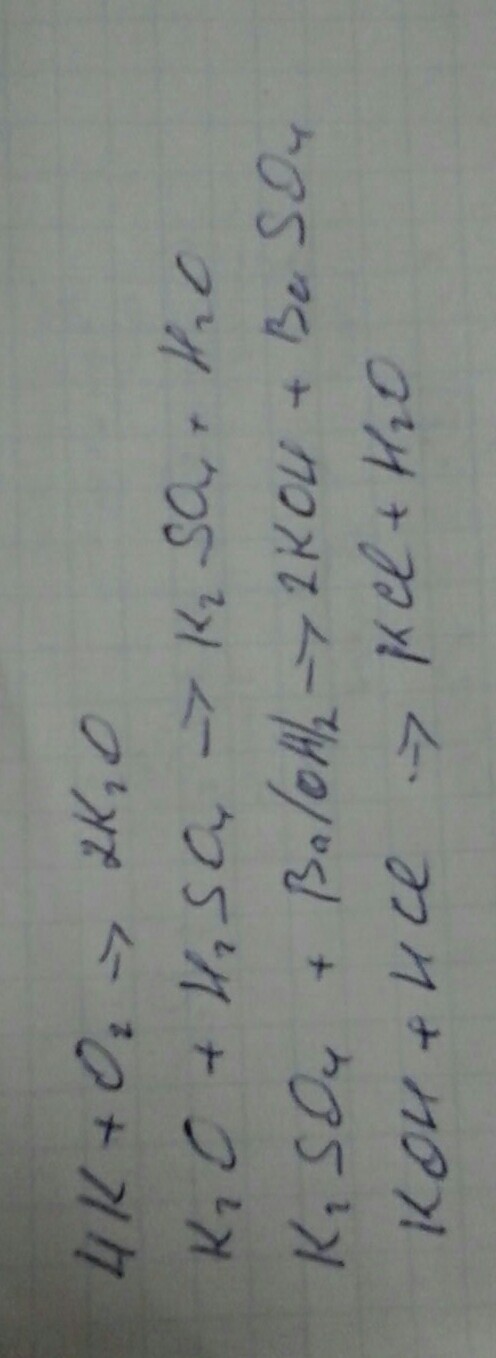 4K + O₂ → 2K₂O
K₂O + H₂SO₄ → K₂SO₄ + H₂O
K₂SO₄ + Ba(OH)₂ → 2KOH + BaSO₄
KOH + HCl → KCl + H₂O